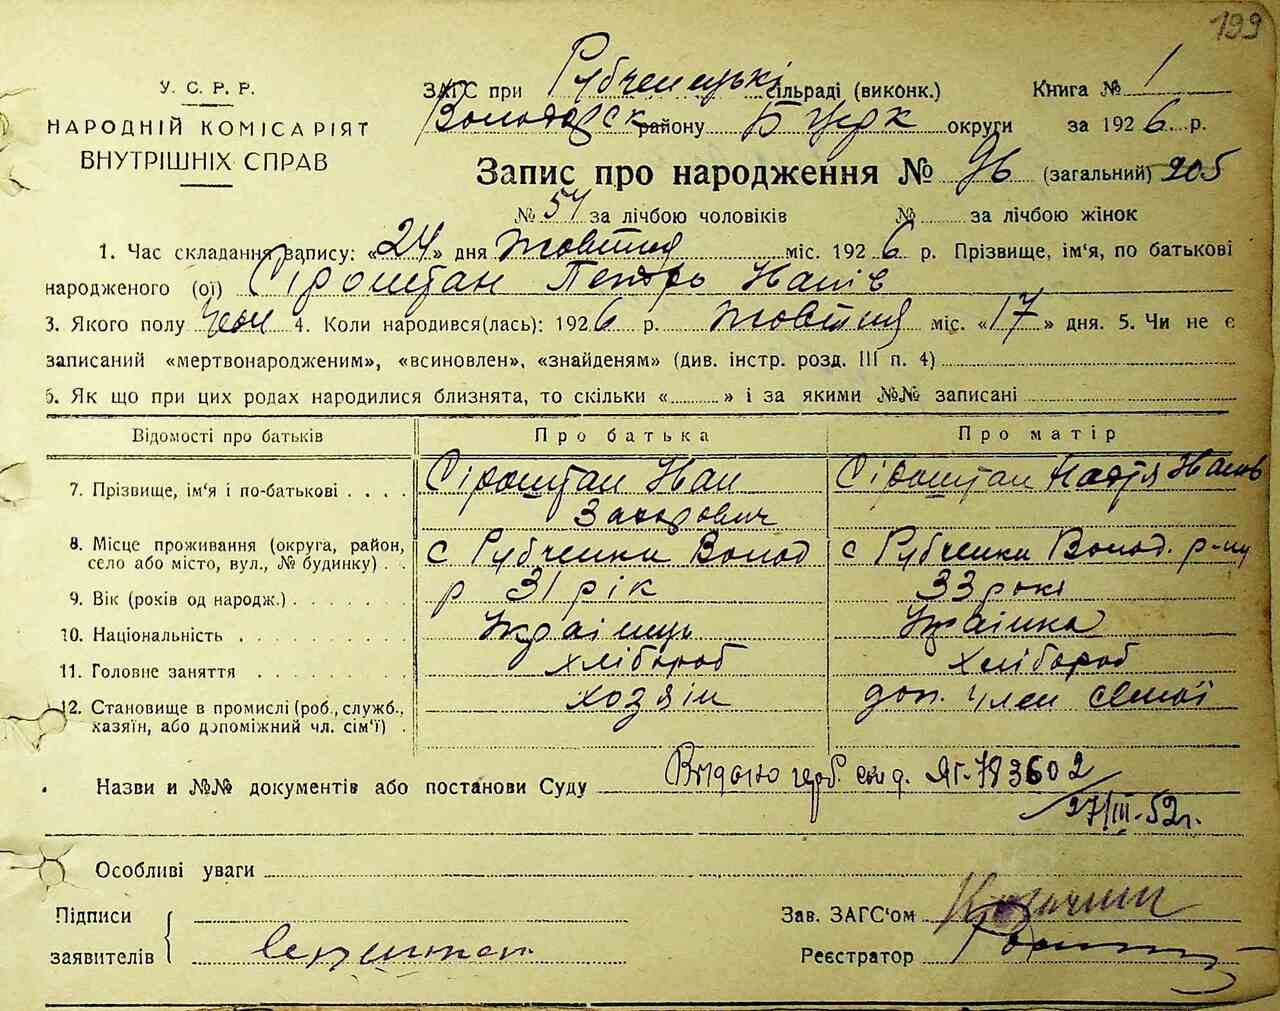 199
У. С. Р. Р.
НАРОДНІЙ КОМІСАРІЯТ
ВНУТРІШНІХ СПРАВ
ЗАГС при Рубченецькі сільраді (виконк.) Книга № 1
Володарск району Б Церк округи за 1926 р.
Запис про народження № 96 (загальний) 205
№ 54 за лічбою чоловіків № за лічбою жінок
1. Час складання запису: «24» дня Жовтня міс. 1926 р. Прізвище, ім'я, по батькові
народженого (ої) Сіроштан Петрь Іванів
3. Якого полу чол 4. Коли народився(лась): 1926 р. Жовтня міс. «17» дня. 5. Чи не є
записаний «мертвонародженим», «всиновлен», «знайденям» (див. інстр. розд. III п. 4)
6. Як що при цих родах народилися близнята, то скільки «» і за якими №№ записані
Відомості про батьків Про батька Про матір
7. Прізвище, ім'я і по-батькові Сіроштан Иван Захарович Сіроштан Надія Иванов
8. Місце проживання (округа, район, село або місто, вул., № будинку) с Рубченки Волод р с Рубченки Волод. р-ну
9. Вік (років од народж.) 31 рік 33 роки
10. Національність Украінець Украінка
11. Головне заняття хлібороб хлібороб
12. Становище в промислі (роб., служб., хазяїн, або допоміжний чл. сім'ї) хозяін доп. член семьї
Назви и №№ документів або постанови Суду Видано герб. свид. ЯГ-783602
27/III-52г.
Особливі уваги
Підписи
заявителів
Зав. ЗАГС'ом
Реєстратор